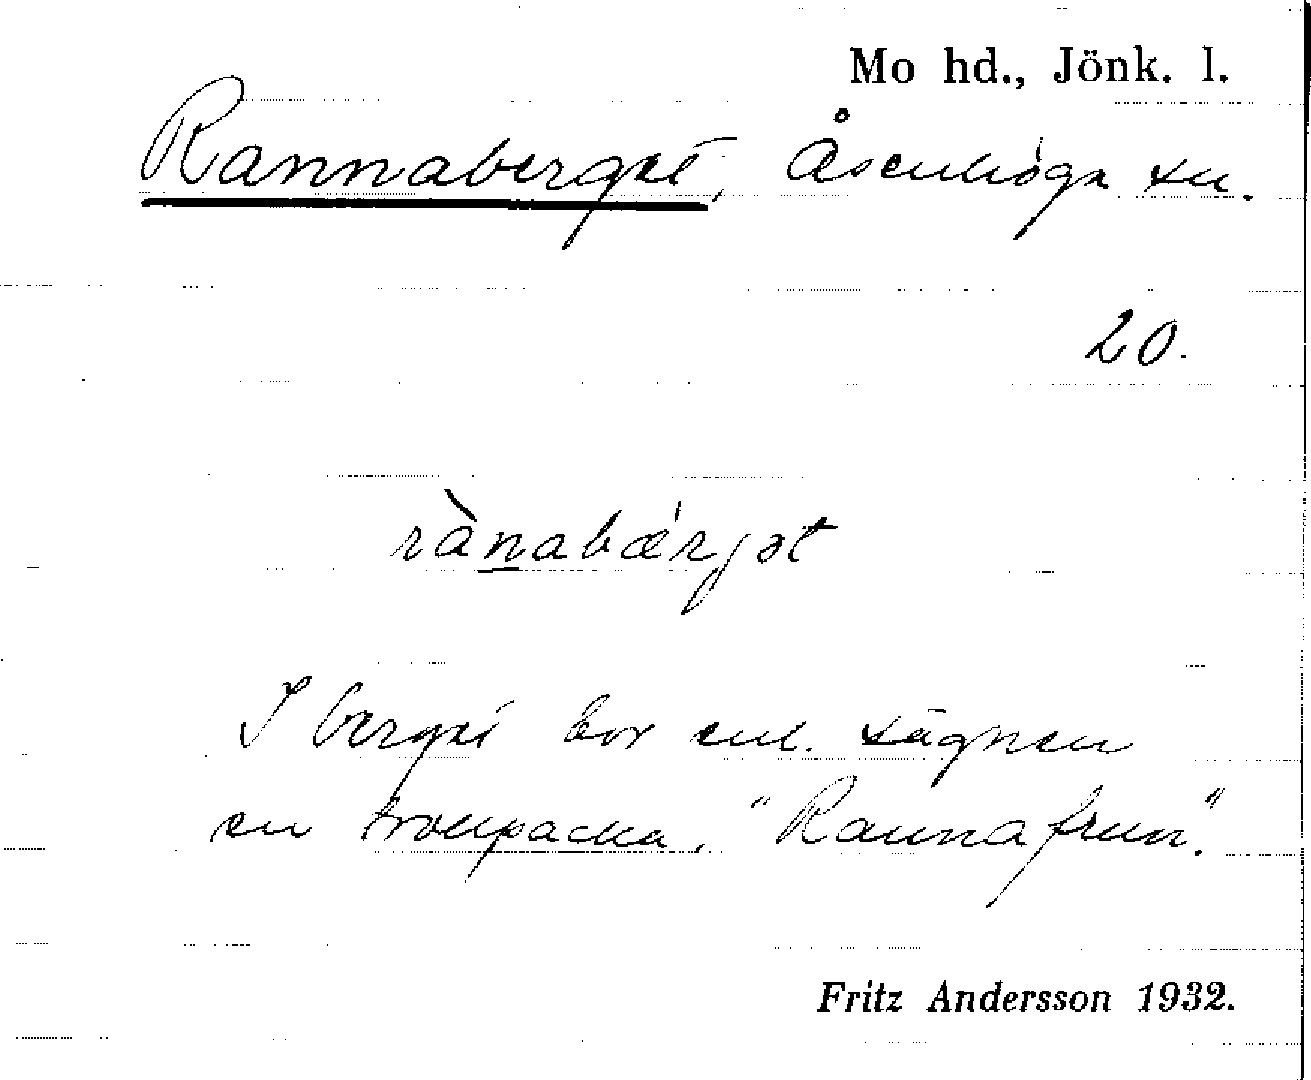 Mo hd., Jönk. l.
Rannaberget, Åsenhöga sn.
20.
rànabǽrjət
I berget bor enl. sägnen
en trollpacka, "Rannafrun".
Fritz Andersson 1932.